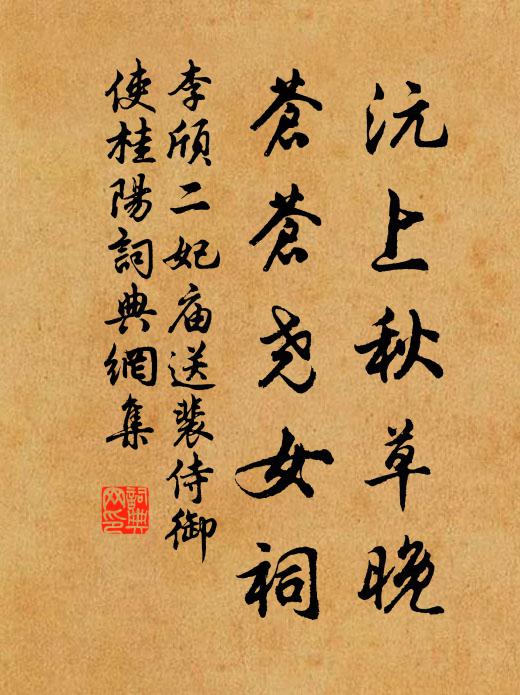 沅上秋草晚
蒼蒼尧女祠
李頎二妃庙送裴侍御
使桂陽詞典網集
詞典
网印